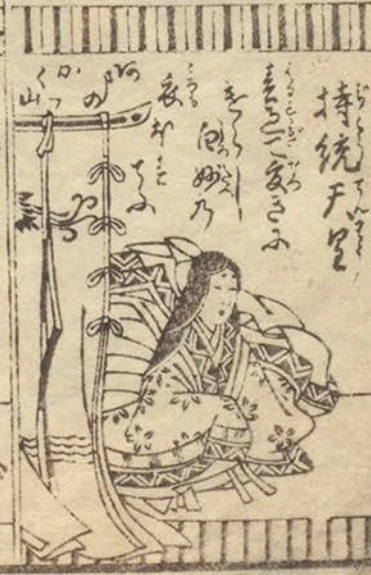 持統天皇
春過て夏きに
けらし
白妙乃
衣ほす
てふ
あまの
かく
山